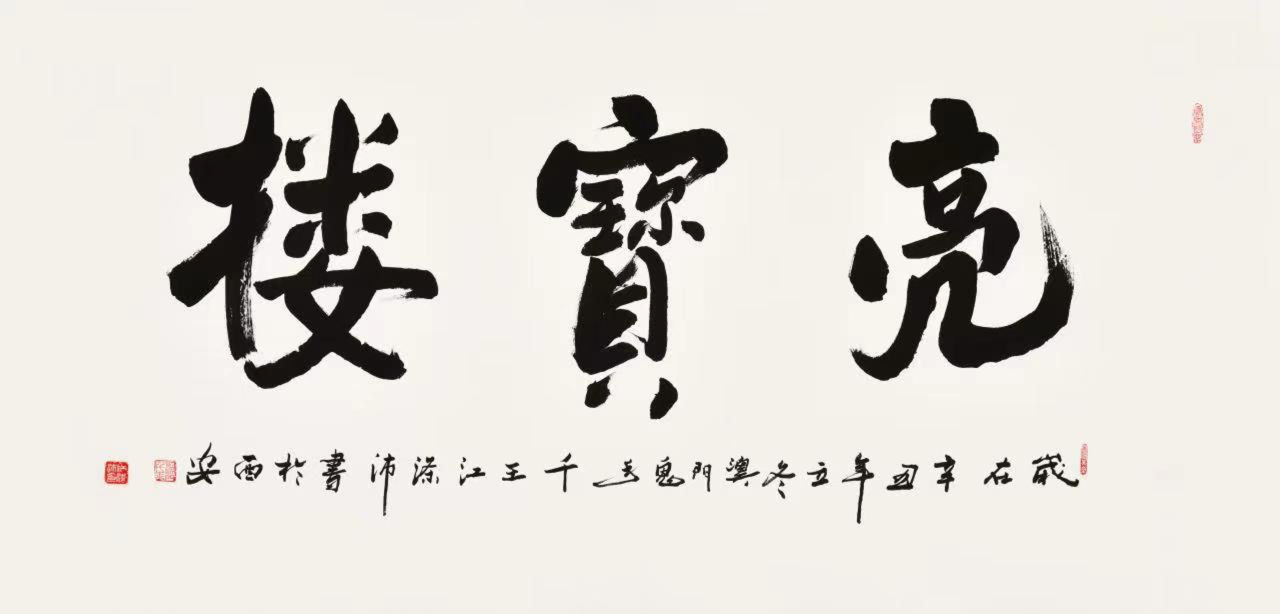 亮寶楼
歲在辛丑年立冬澳門千王江滌沛書於西安